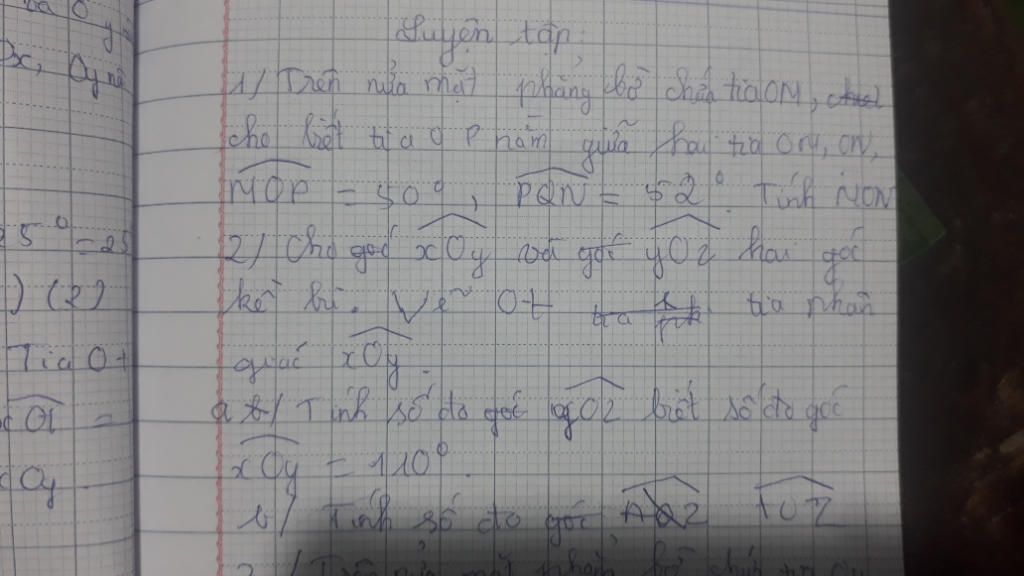 Luyện tập:
1/ Trên nửa mặt phẳng bờ chứa tia OM,
cho biết tia OP nằm giữa hai tia OM, ON,
MOP = 50°, PON = 52°. Tính MON
2/ Cho góc xOy và góc yOz hai góc
kề bù. Vẽ Ot tia phân
giác xOy.
a/ Tính số đo góc yOz biết số đo góc
xOy = 110°.
b/ Tính số đo góc AOZ TOZ
Oy
Ox, Oy nê
25° = 25
) (2)
Tia Ot
xOt =
xOy